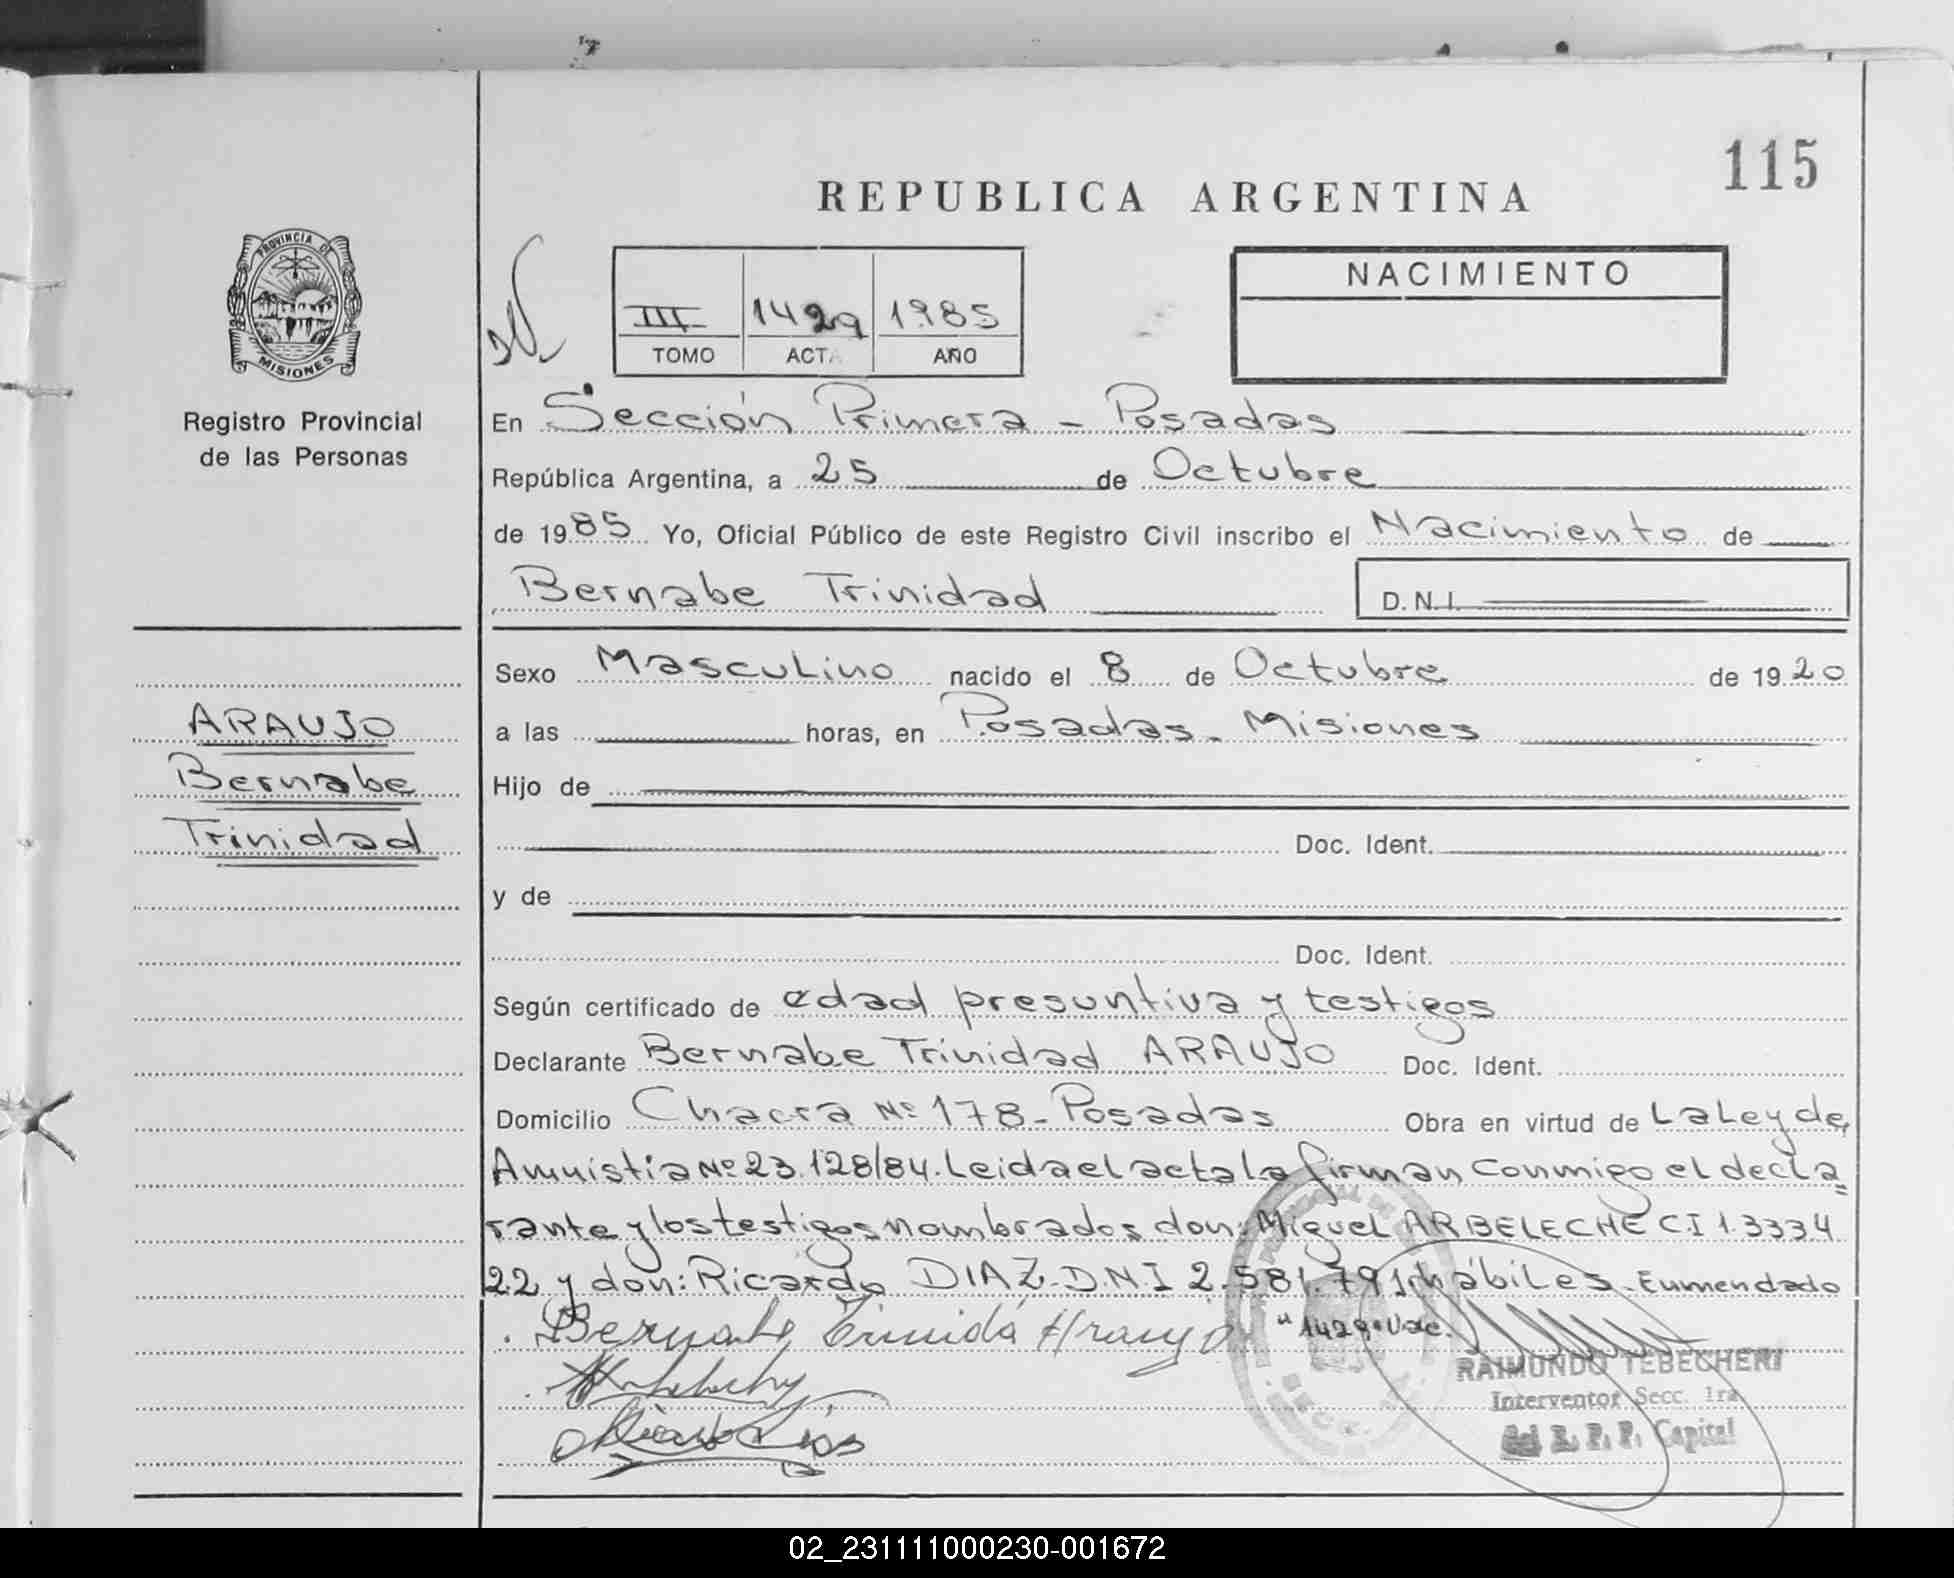 115
REPUBLICA ARGENTINA
PROVINCIA DE
MISIONES
Registro Provincial
de las Personas
III 1429 1985
TOMO ACTA AÑO
NACIMIENTO
En Sección Primera - Posadas
República Argentina, a 25 de Octubre
de 1985 Yo, Oficial Público de este Registro Civil inscribo el Nacimiento de
Bernabe Trinidad D.N.I.
Sexo Masculino nacido el 8 de Octubre de 1920
a las horas, en Posadas - Misiones
ARAUJO
Bernabe
Trinidad
Hijo de
Doc. Ident.
y de
Doc. Ident.
Según certificado de edad presuntiva y testigos
Declarante Bernabe Trinidad ARAUJO Doc. Ident.
Domicilio Chacra Nº 178 - Posadas Obra en virtud de La Ley de
Amnistia Nº 23.128/84. Leida el acta la firman conmigo el decla
rante y los testigos nombrados don: Miguel ARBELECHE C.I 1.3334
22 y don: Ricardo DIAZ - D.N.I 2.581.791 hábiles. Enmendado
Bernabe Trinida Araujo "1429" Vale.
RAIMUNDO TEBECHERI
Interventor Secc. 1ra
del R. P. P. Capital
02_231111000230-001672